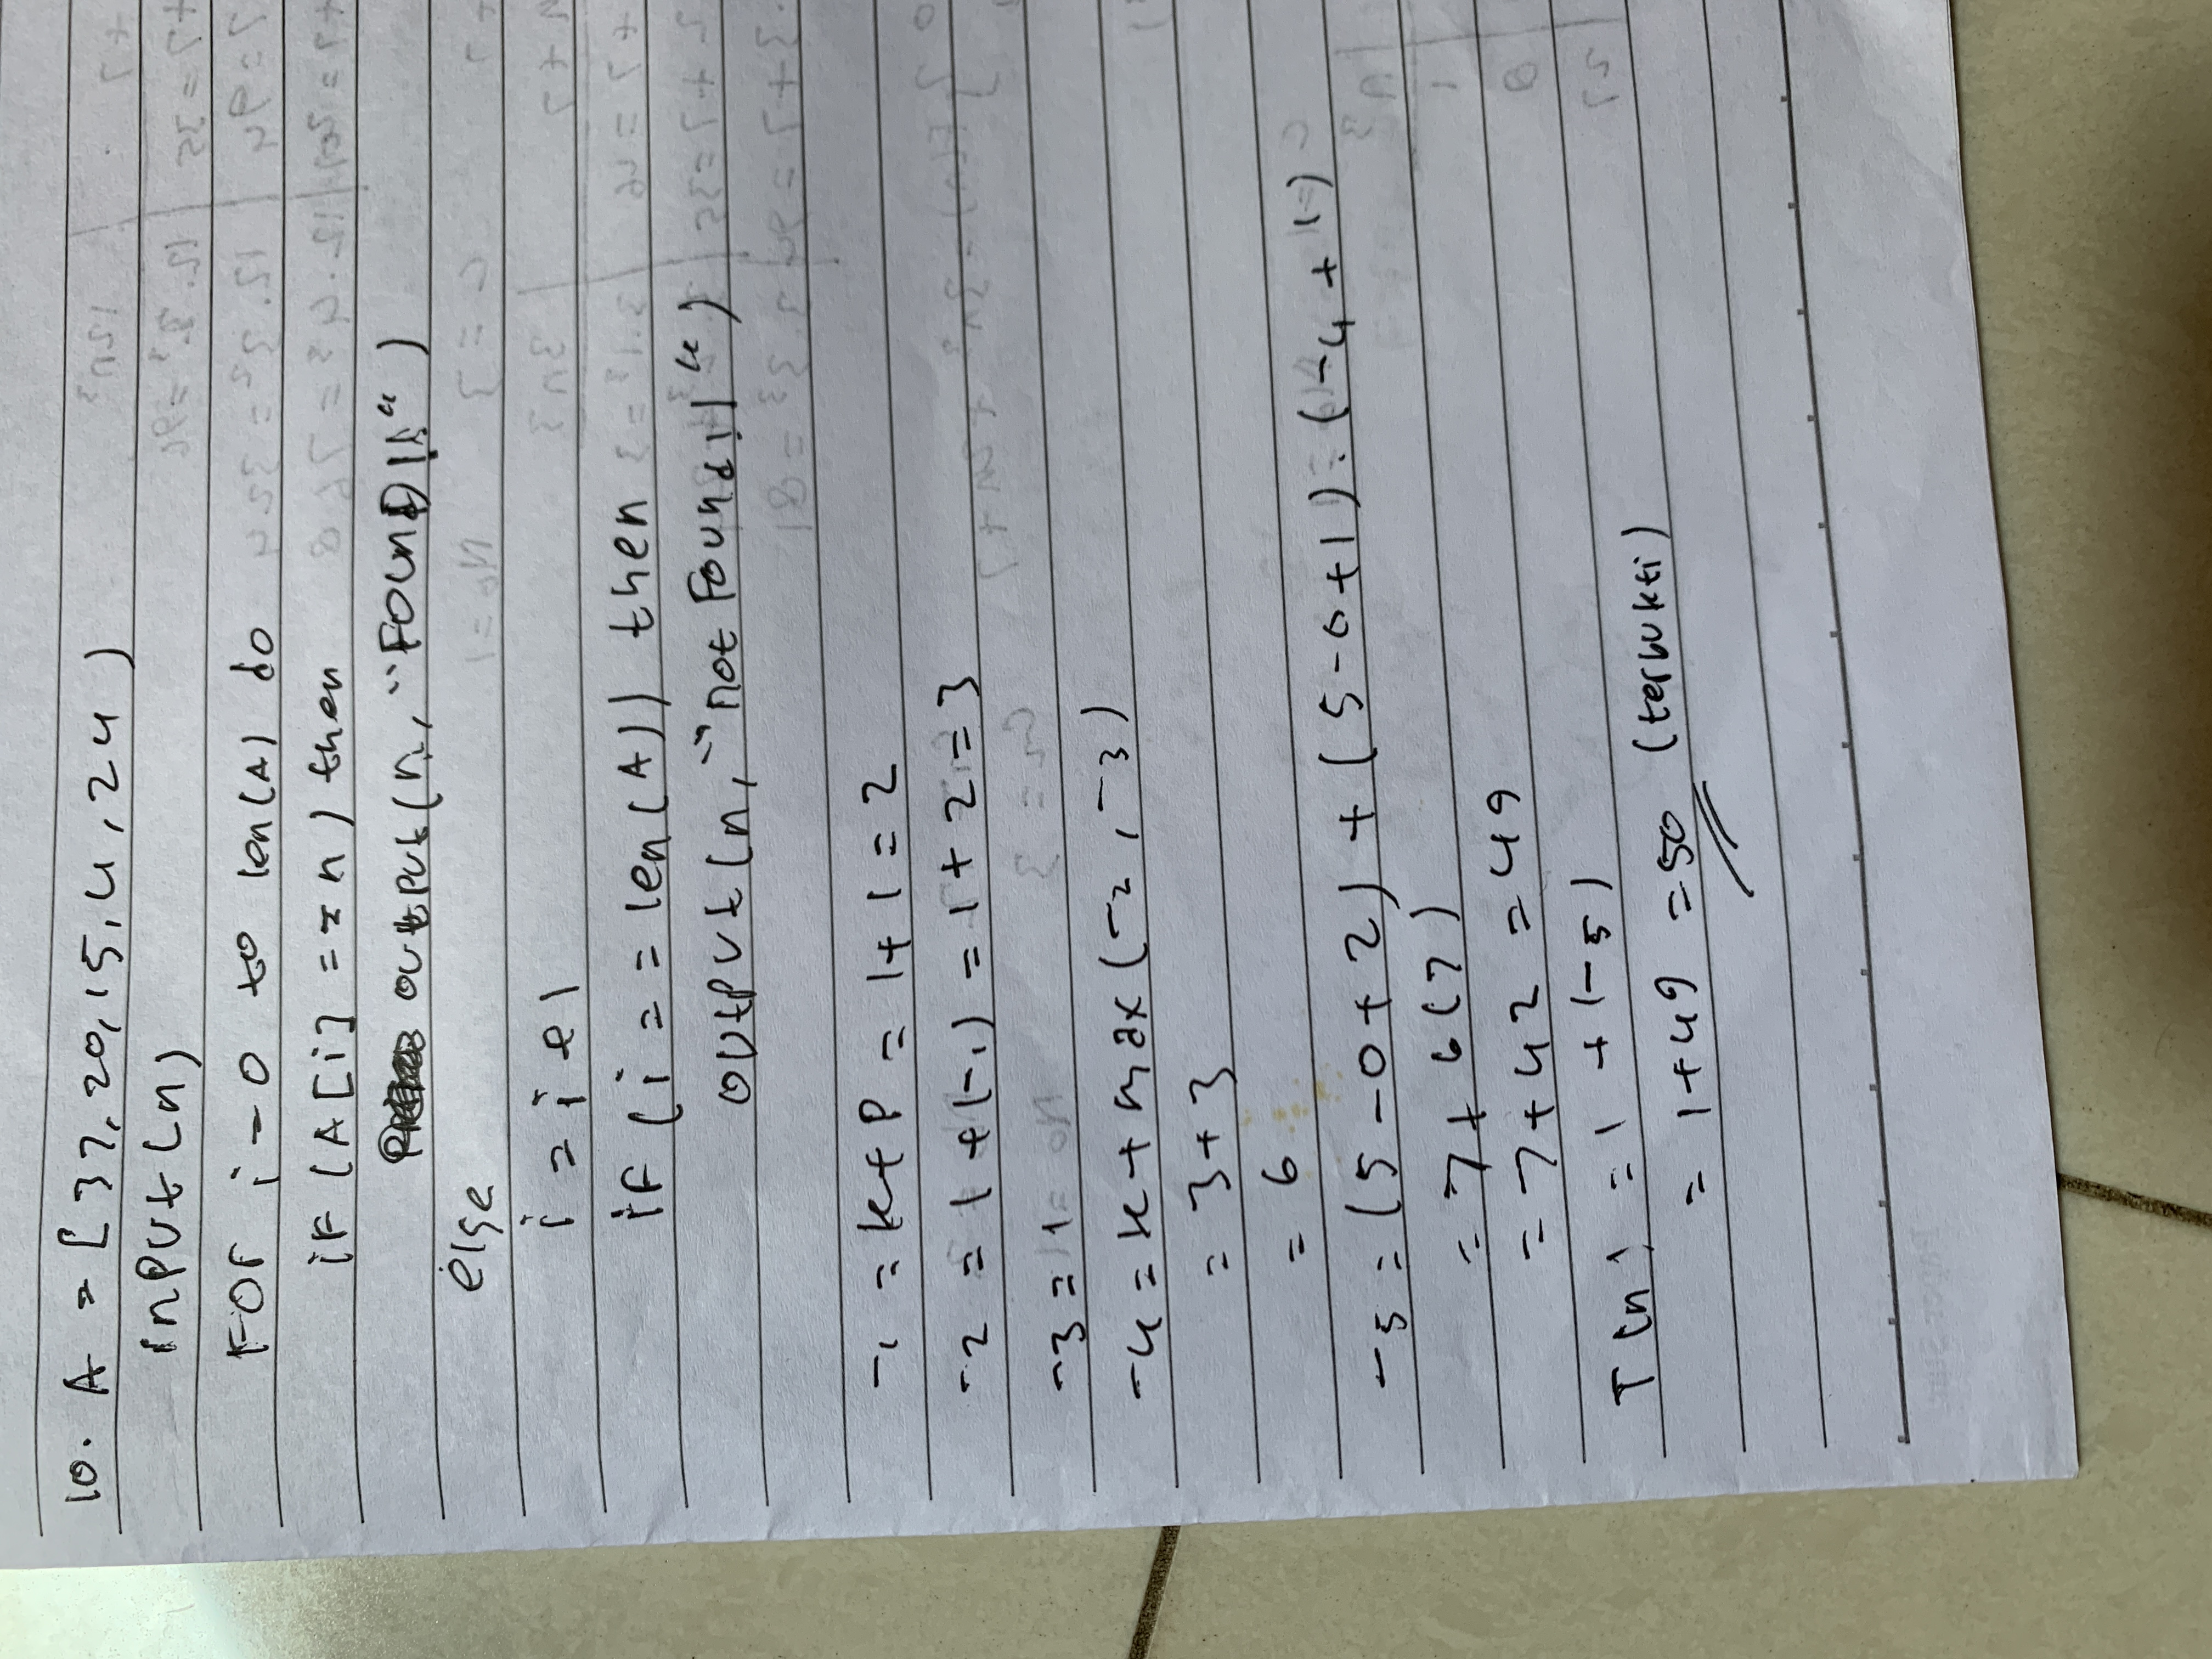 10. A = [37, 20, 15, 4, 24)
input(n)
For i = 0 to len(A) do
if (A[i] == n) then
output(n, "Found!!")
else
i = i + 1
if (i == len(A)) then
output(n, "not Found!!")
-1 = k + P = 1 + 1 = 2
-2 = 1 + (-1) = 1 + 2 = 3
-3 = 1
-4 = k + max(-2, -3)
= 3 + 3
= 6
-5 = (5 - 0 + 2) + (5 - 0 + 1) . (-4 + 1)
= 7 + 6(7)
= 7 + 42 = 49
T(n) = 1 + (-5)
= 1 + 49 = 50 (terbukti)